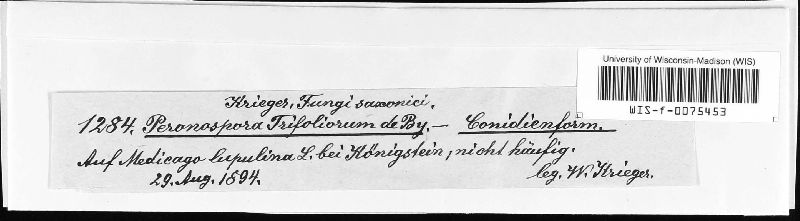 University of Wisconsin-Madison (WIS)
WIS-f-0075453
Krieger, Fungi saxonici.
1284. Peronospora Trifoliorum de By. — Conidienform.
Auf Medicago lupulina L. bei Königstein, nicht häufig.
29. Aug. 1894. leg. W. Krieger.